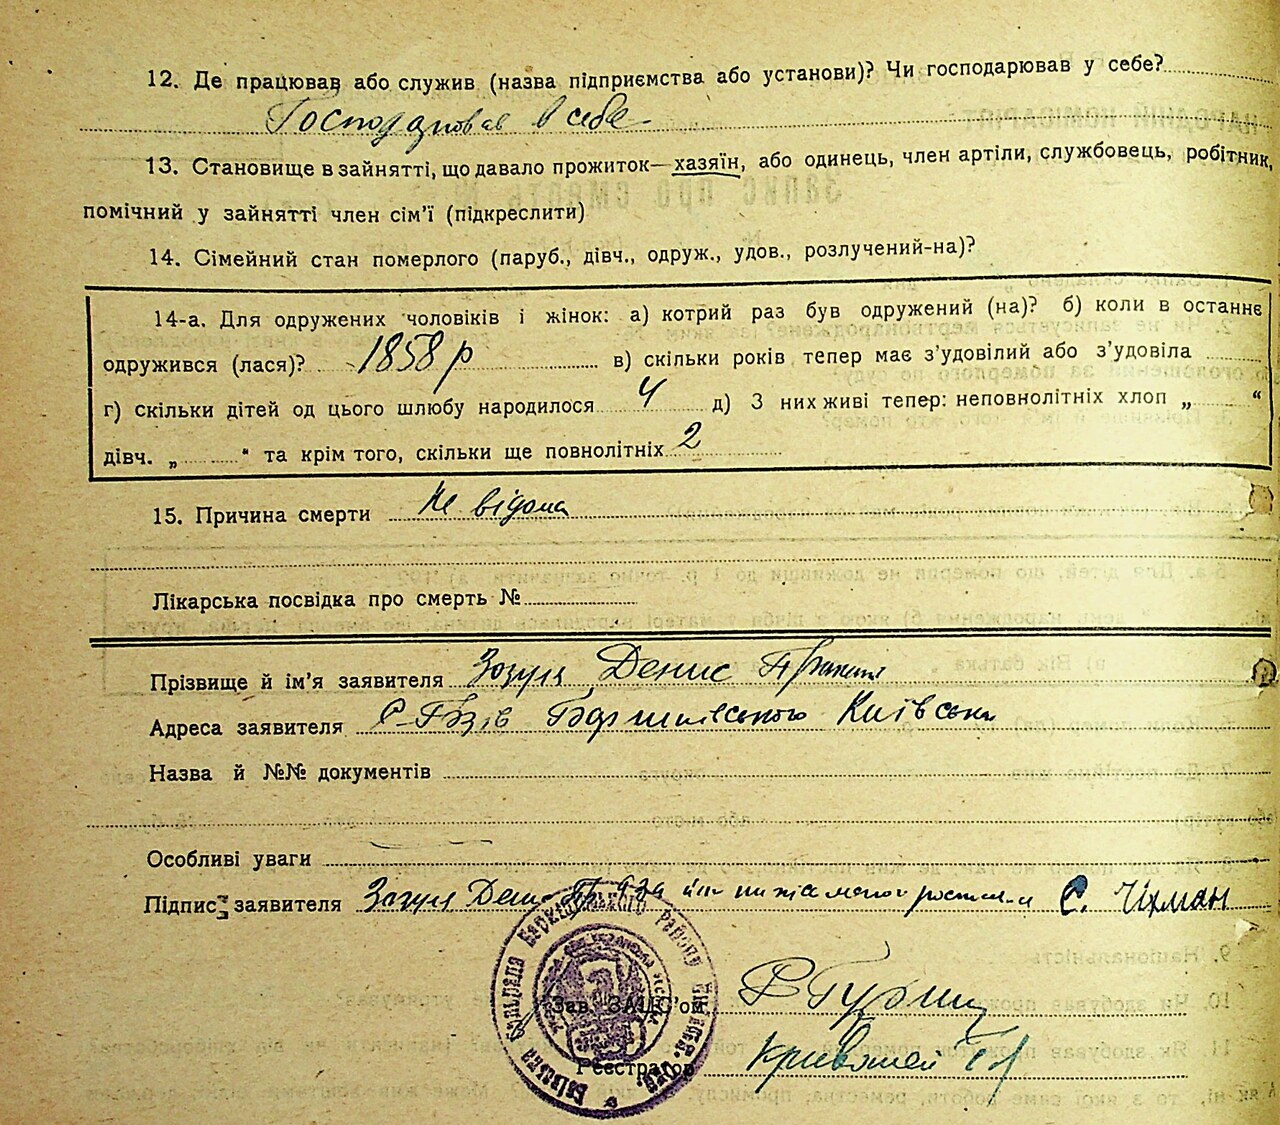 12. Де працював або служив (назва підприємства або установи)? Чи господарював у себе?
Господарював в себе
13. Становище в зайнятті, що давало прожиток—хазяїн, або одинець, член артіли, службовець, робітник,
помічний у зайнятті член сім'ї (підкреслити)
14. Сімейний стан померлого (паруб., дівч., одруж., удов., розлучений-на)?
14-а. Для одружених чоловіків і жінок: а) котрий раз був одружений (на)? б) коли в останнє
одружився (лася)? 1858 р в) скільки років тепер має з'удовілий або з'удовіла
г) скільки дітей од цього шлюбу народилося 4 д) З них живі тепер: неповнолітніх хлоп „ “
дівч. „ “ та крім того, скільки ще повнолітніх 2
15. Причина смерти Не відома
Лікарська посвідка про смерть №
Прізвище й ім'я заявителя Зозуля Денис
Адреса заявителя Київськ
Назва й №№ документів
Особливі уваги
Підпис заявителя Зозуля Денис С. Чіхман
Зав. ЗАЦС'ом
Реєстратор